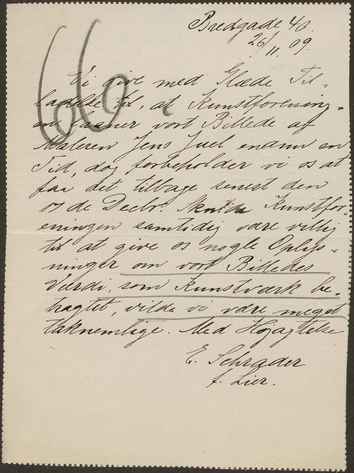 Bredgade 40.
26/11 09.
66
Vi give med Glæde Til-
ladelse til, at Kunstforening-
en laaner vort Billede af
Maleren Jens Juel en
Tid, dog forbeholder vi os at
faa det tilbage senest den
de Decbr. Kunstfor-
eningen samtidig være villig
til at give os nogle Oplys-
ninger om vort Billedes
Værdi, som Kunstværk be-
tragtet, vilde vi være meget
taknemlige. Med Højagtelse
E. Schrader
f. Lier.